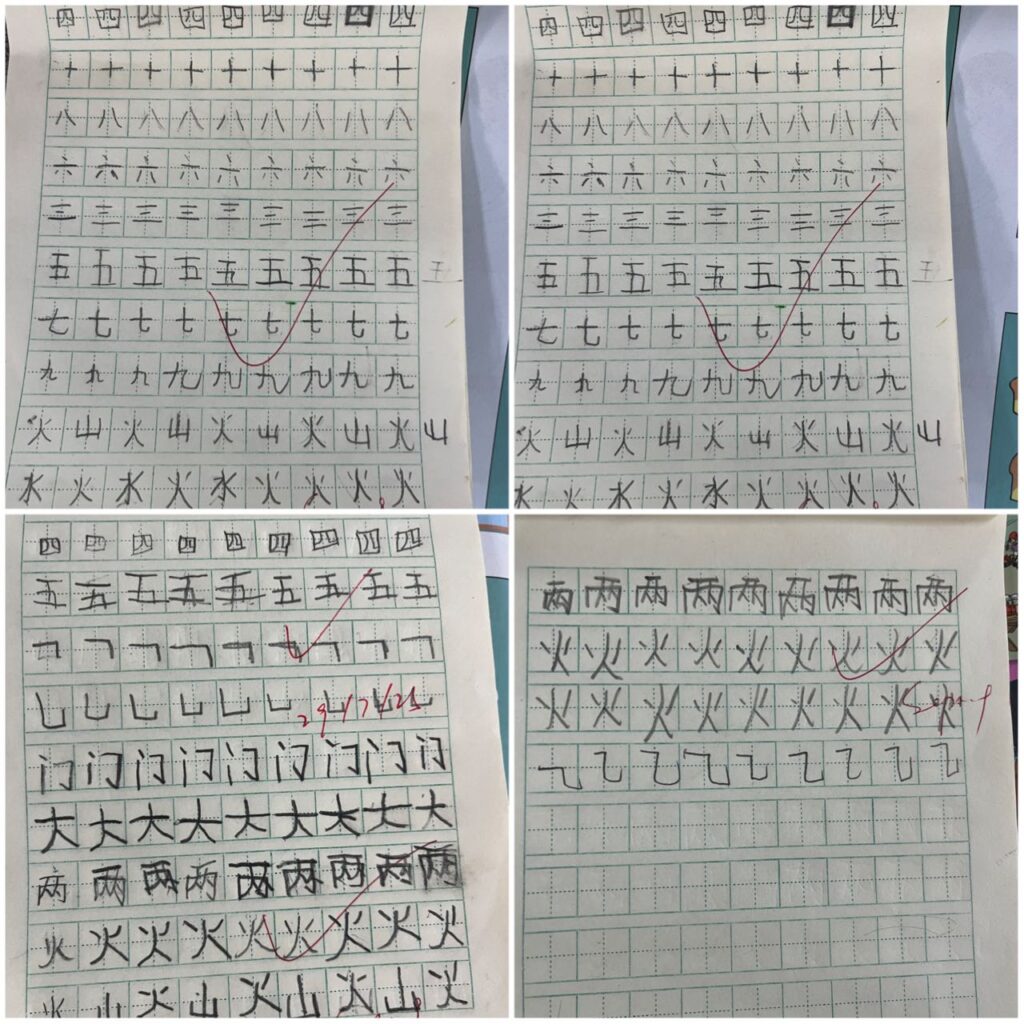 四四四四四四四四四
十十十十十十十十十
八八八八八八八八八
六六六六六六六六六
三三三三三三三三三
五五五五五五五五五 五
七七七七七七七七七
九九九九九九九九九
火山火山火山火山火 山
水火水火水火火火火
四四四四四四四四四
十十十十十十十十十
八八八八八八八八八
六六六六六六六六六
三三三三三三三三三
五五五五五五五五五 五
七七七七七七七七七
九九九九九九九九九
火山火山火山火山火 山
水火水火水火火火火
四四四四四四四四四
五五五五五五五五五
㇕㇕㇕㇕㇕㇕㇕㇕㇕
㇄㇄㇄㇄㇄㇄㇄㇄㇄
29/7/25
门门门门门门门门门
大大大大大大大大大
两两两两两两两两两
火火火火火火火火火
火山火山火山火山火
两两两两两两两两两
火火火火火火火火火
火火火火火火火火火
㇈㇈㇈㇈㇈㇈㇈㇈㇈